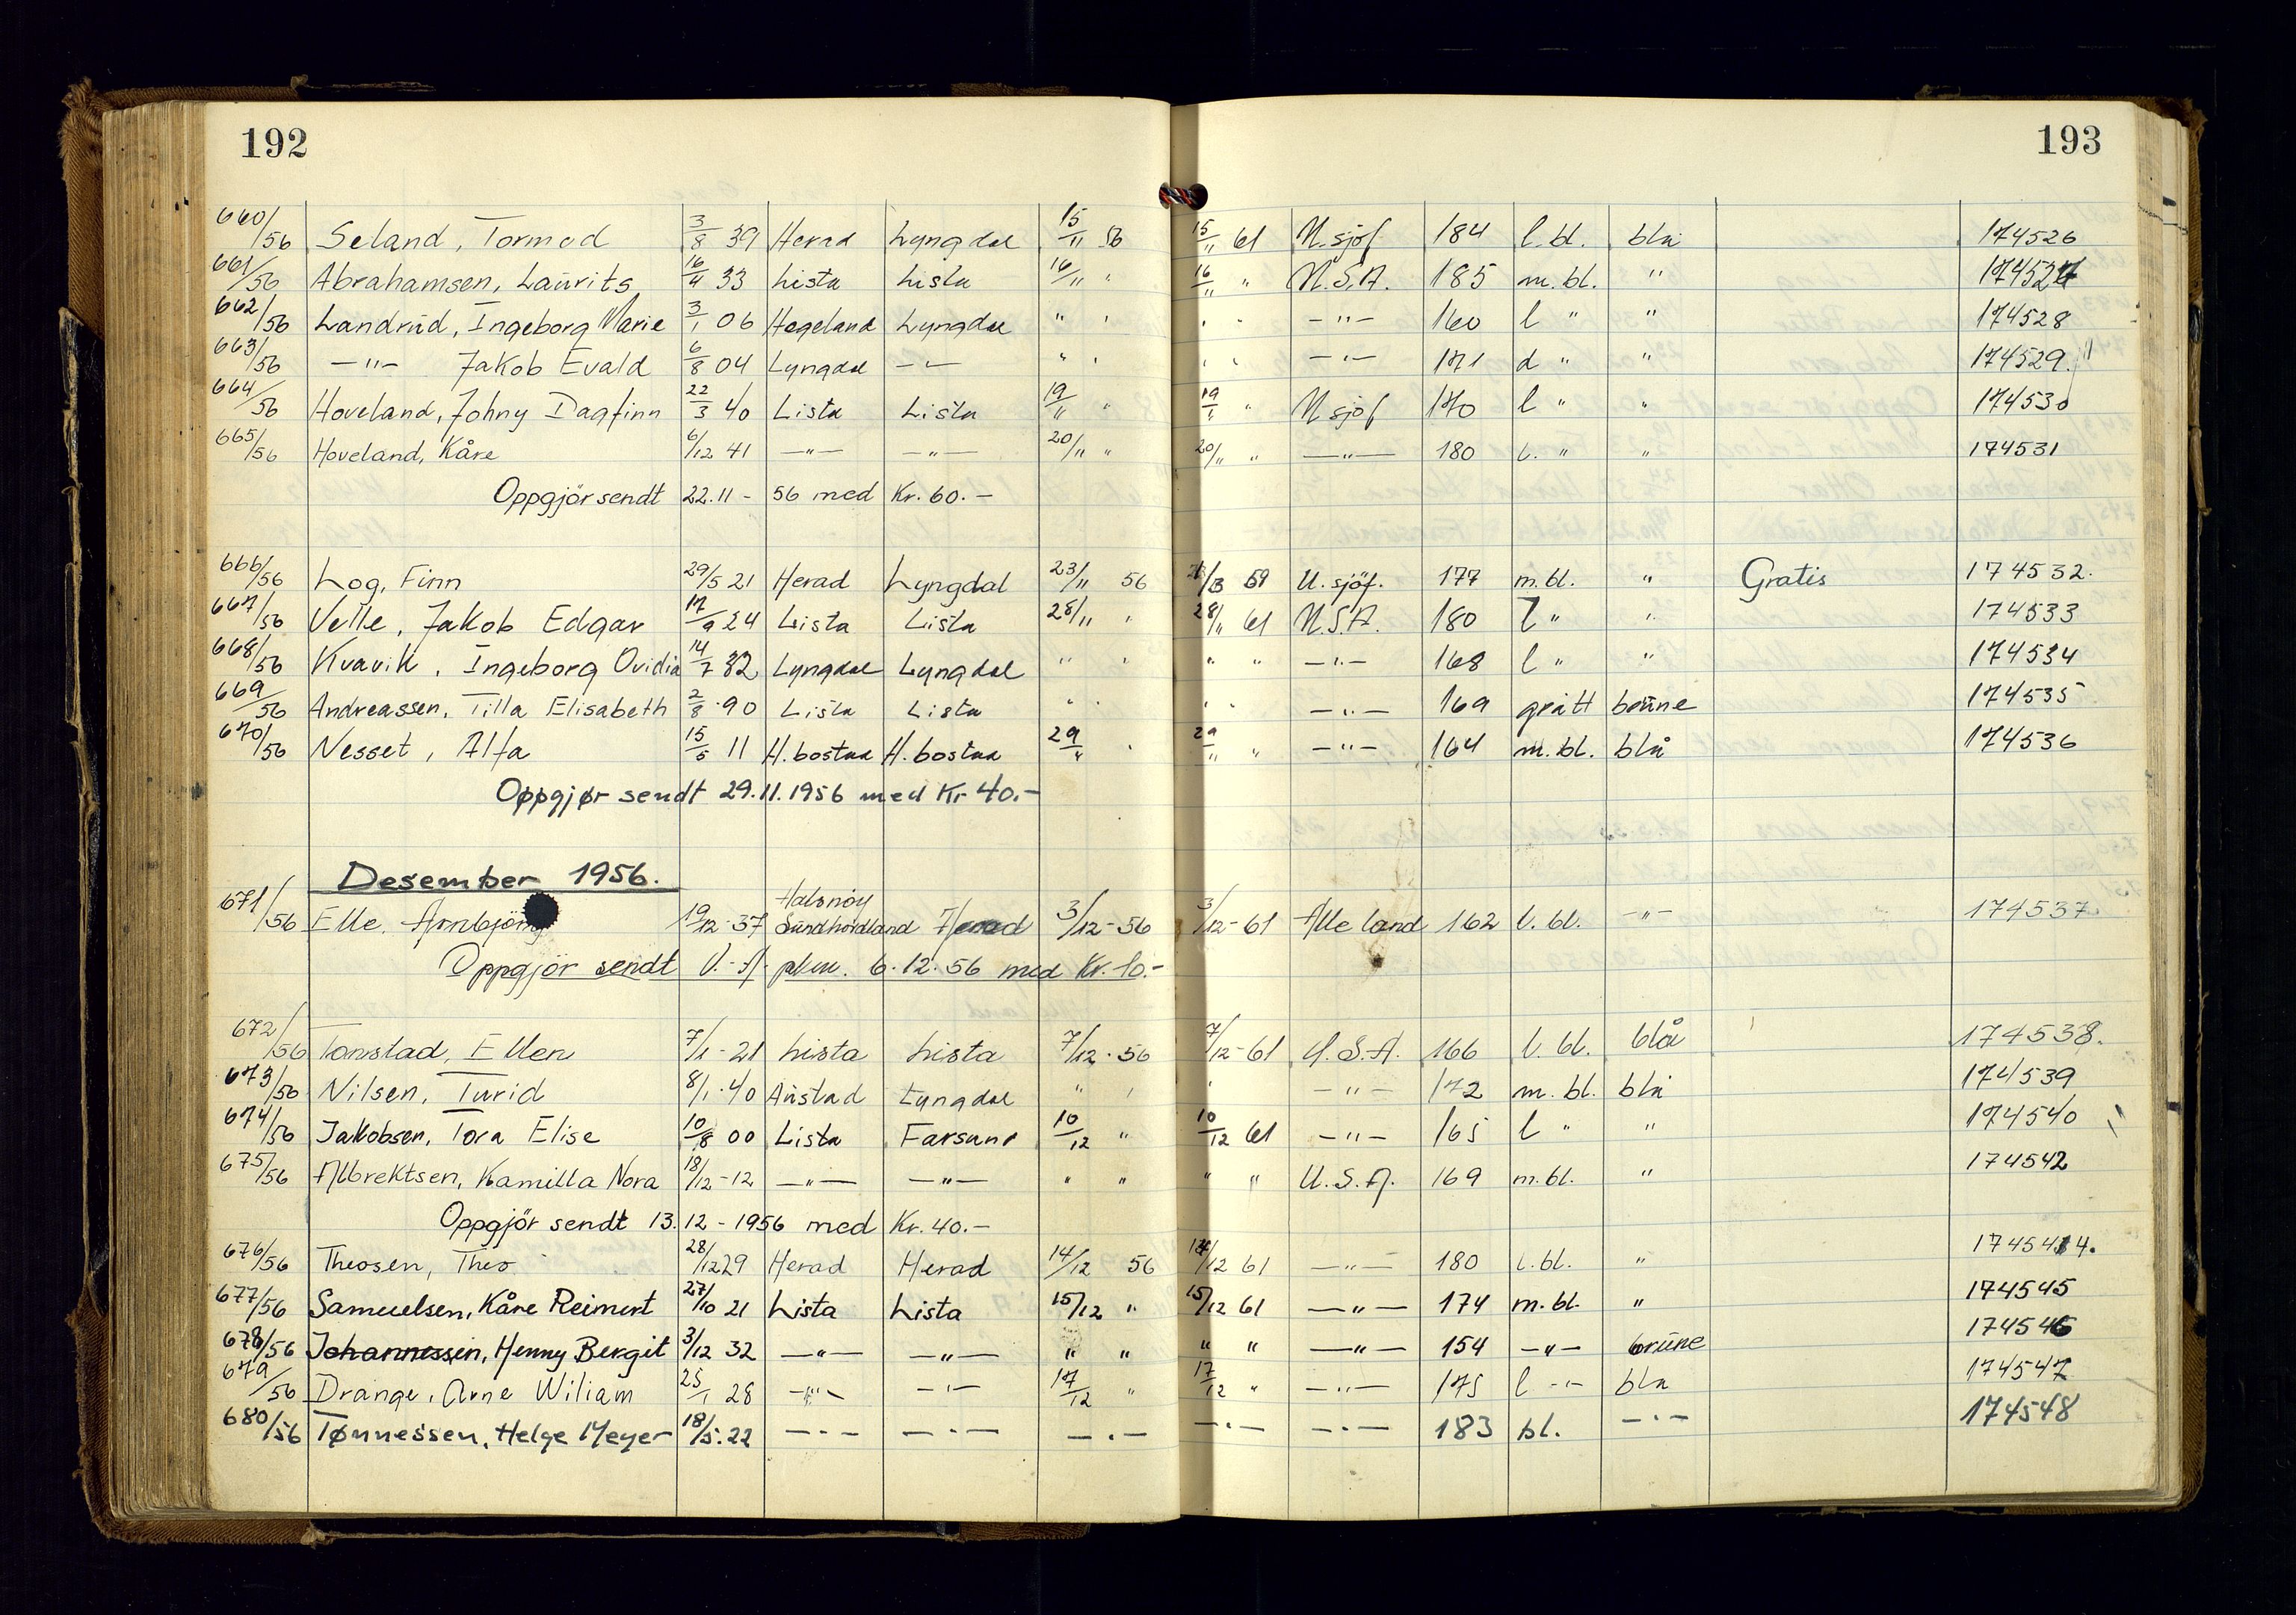 192
193
660/56 Seland, Tormod 3/8 39 Herad Lyngdal 15/11 56 15/11 61 U. sjöf 184 l. bl. blå 174526
661/56 Abrahamsen, Laurits 16/4 33 Lista Lista 16/11 " 16/11 " U.S.A. 185 m. bl. " 174527
662/56 Landrud, Ingeborg Marie 3/1 06 Hegeland Lyngdal " " " " —"— 160 l " " 174528
663/56 —"— Jakob Evald 6/8 04 Lyngdal —"— " " " " —"— 171 d " " 174529
664/56 Hoveland, Johny Dagfinn 22/3 40 Lista Lista 19/11 " 19/11 " U sjöf 170 l " " 174530
665/56 Hoveland, Kåre 6/12 41 —"— —"— 20/11 " 20/11 " —"— 180 l. " " 174531
Oppgjör sendt 22.11 - 56 med Kr. 60.-
666/56 Log, Finn 29/5 21 Herad Lyngdal 23/11 56 59 U. sjöf. 177 m. bl. " Gratis 174532.
667/56 Velle, Jakob Edgar 17/9 24 Lista Lista 28/11 " 28/11 61 U.S.A. 180 l " " 174533
668/56 Kvavik, Ingeborg Ovidia 14/7 32 Lyngdal Lyngdal " " " " —"— 168 l " " 174534
669/56 Andreassen, Tilla Elisabeth 2/8 90 Lista Lista " " " " —"— 169 grått brune 174535
670/56 Nesset, Alfa 15/5 11 H. bostad H. bostad 29/11 " 29/11 " —"— 164 m. bl. blå 174536
Oppgjør sendt 29.11.1956 med Kr 40.-
Desember 1956.
671/56 Elle, Arnbjörg 19/12-37 Halsnöy Sundhordland Herad 3/12-56 3/12-61 Alle land 162 l. bl. —"— 174537
Oppgjör sendt 6.12.56 med Kr. 10.-
672/56 Tonstad, Ellen 7/1-21 Lista Lista 7/12-56 7/12-61 U.S.A. 166 l. bl. blå 174538.
673/56 Nilsen, Turid 8/1-40 Austad Lyngdal " " " —"— 172 m. bl. blå 174539
674/56 Jakobsen, Tora Elise 10/8 00 Lista Farsund 10/12 " 10/12 61 —"— 165 l " " 174540
675/56 Albrektsen, Kamilla Nora 18/12-12 —"— —"— " " " " U.S.A. 169 m. bl. " 174542
Oppgjör sendt 13.12-1956 med Kr. 40.-
676/56 Theosen, Theo 28/12 29 Herad Herad 14/12 56 14/12 61 —"— 180 l. bl. " 174544.
677/56 Samuelsen, Kåre Reimert 27/10 21 Lista Lista 15/12 " 15/12 61 —"— 174 m. bl. " 174545
678/56 Johannessen, Henny Bergit 3/12 32 —"— —"— " " " " —"— 154 —"— brune 174546
679/56 Drange, Arne Wiliam 25/1 28 —"— —"— 17/12 " 17/12 " —"— 175 l —"— blå 174547
680/56 Tønnessen, Helge Meyer 18/5.22 —"— —"— —"— —"— —"— 183 bl. —"— 174548